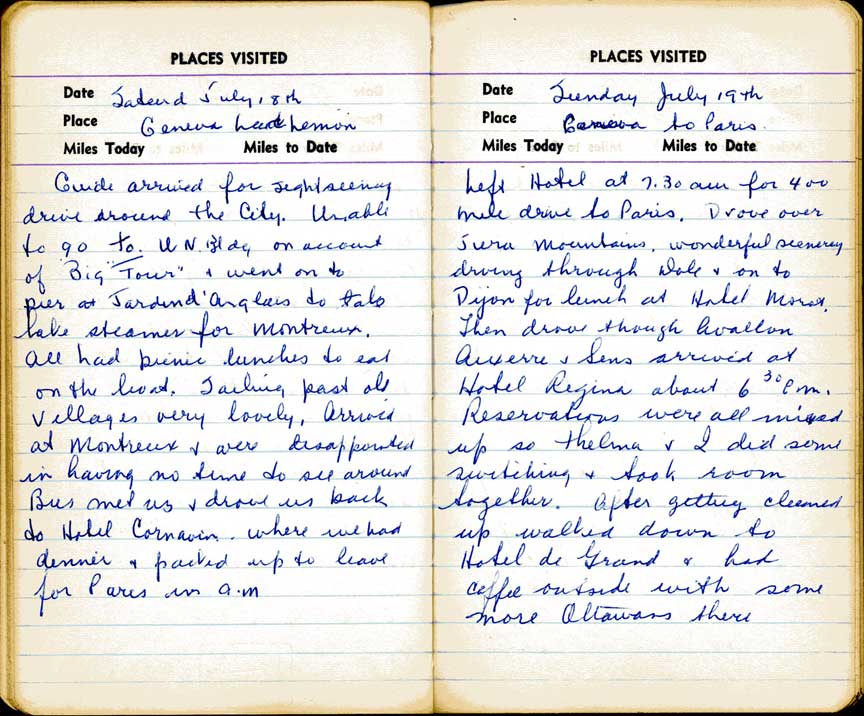 PLACES VISITED
Date Saturd July, 18th
Place Geneva Lemon
Miles Today Miles to Date
Guide arrived for sightseeing
drive around the City. Unable
to go to. U.N. Bldg on account
of "Big "Tour" & went on to
pier at Jardind'Anglais to take
lake steamer for Montreux.
All had picnic lunches to eat
on the boat. Sailing past old
villages very lovely, Arrived
at Montreux & were disappointed
in having no time to see around
Bus met us & drove us back
to Hotel Cornavin. where we had
dinner & packed up to leave
for Paris in a.m
PLACES VISITED
Date Sunday July 19th
Place Geneva to Paris.
Miles Today Miles to Date
Left Hotel at 7.30 am for 400
mile drive to Paris. Drove over
Jura Mountains, wonderful scenery
driving through Dole & on to
Dijon for lunch at Hotel Morot.
Then drove though Avallon
Auxerre & Sens arrived at
Hotel Regina about 6 30 P.m.
Reservations were all mixed
up so Thelma & I did some
switching & took room
together. After getting cleaned
up walked down to
Hotel de Grand & had
coffee outside with some
more Ottawans there